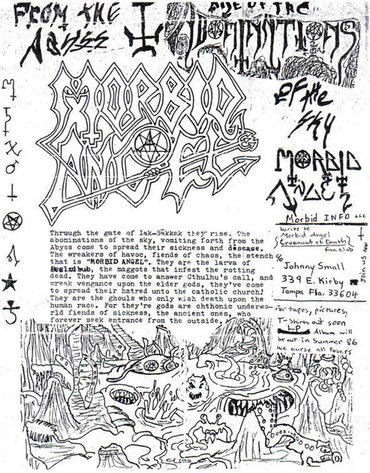 FROM THE
ABYSS
EYE OF THE
ABOMINATIONS
OF THE
SKY
MORBID
ANGEL
MORBID
ANGEL
Morbid INFO 666
write to
Morbid Angel
(Covenant of Death)
fan club
Johnny Small
339 E. Kirby
Tampa Fla. 33604
Join us now
For tapes, pictures,
T-Shirts out soon
Album will
be out in Summer 86
We curse all Posers
Through the gate of Iak-Sakkak they rise. The
abominations of the sky, vomiting forth from the
Abyss come to spread their sickness and disease.
The wreakers of havoc, fiends of chaos, the stench
that is "MORBID ANGEL". They are the larva of
Beelzibub, the maggots that infest the rotting
dead. They have come to answer Cthulhu's call, and
wreak vengance upon the elder gods, they've come
to spread their hatred unto the catholic church!
They are the ghouls who only wish death upon the
human race. For they're gods are chthonic underwo-
rld fiends of sickness, the ancient ones, who
forever seek entrance from the outside,